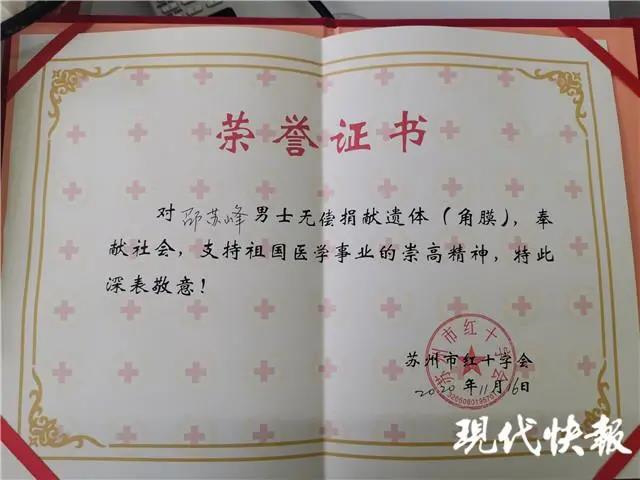 荣誉证书
对邵苏峰男士无偿捐献遗体（角膜），奉
献社会，支持祖国医学事业的崇高精神，特此
深表敬意！
苏州市红十字会
苏州市红十字会
2020年11月16日
现代快報